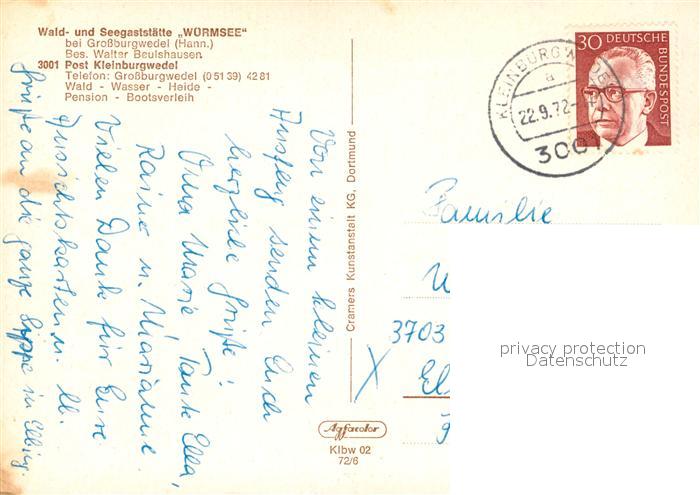 Wald- und Seegaststätte „WÜRMSEE"
bei Großburgwedel (Hann.)
Bes. Walter Beulshausen
3001 Post Kleinburgwedel
Telefon: Großburgwedel (0 51 39) 42 81
Wald - Wasser - Heide -
Pension - Bootsverleih
Von einem kleinen
Ausflug senden Euch
herzliche Grüße!
Oma Marie, Tante Ella,
Raine u. Marianne.
Vielen Dank für Eure
Ansichtskarten u. ll.
Grüße an die ganze Sippe in
Cramers Kunstanstalt KG, Dortmund
Agfacolor
Klbw 02
72/6
30 DEUTSCHE
BUNDESPOST
KLEINBURGWEDEL
a
22.9.72
3001
Familie
3703
privacy protection
Datenschutz